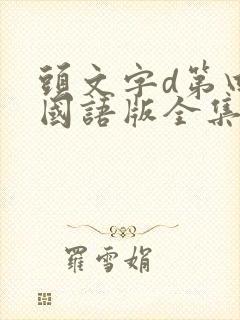 頭文字d第
國語版全集
羅雪娟